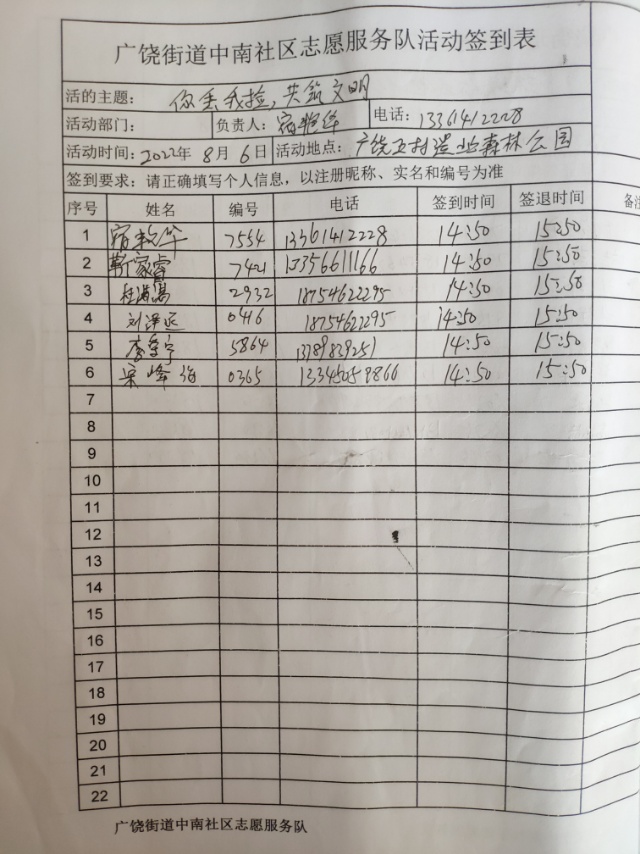 广饶街道中南社区志愿服务队活动签到表
活的主题： 你丢我捡，共筑文明
活动部门： 负责人：宿艳华 电话：13361412228
活动时间：2022年8月6日 活动地点：广饶 村 森林公园
签到要求：请正确填写个人信息，以注册昵称、实名和编号为准
序号 姓名 编号 电话 签到时间 签退时间 备注
1 宿 华 7554 13361412228 14:50 15:50
2 靳家睿 7421 15356611166 14:50 15:50
3 杜 2932 18754622295 14:50 15:50
4 刘泽远 0416 18754622295 14:50 15:50
5 李 宇 5864 13789839251 14:50 15:50
6 宋峰 0365 13345059866 14:50 15:50
7
8
9
10
11
12
13
14
15
16
17
18
19
20
21
22
广饶街道中南社区志愿服务队